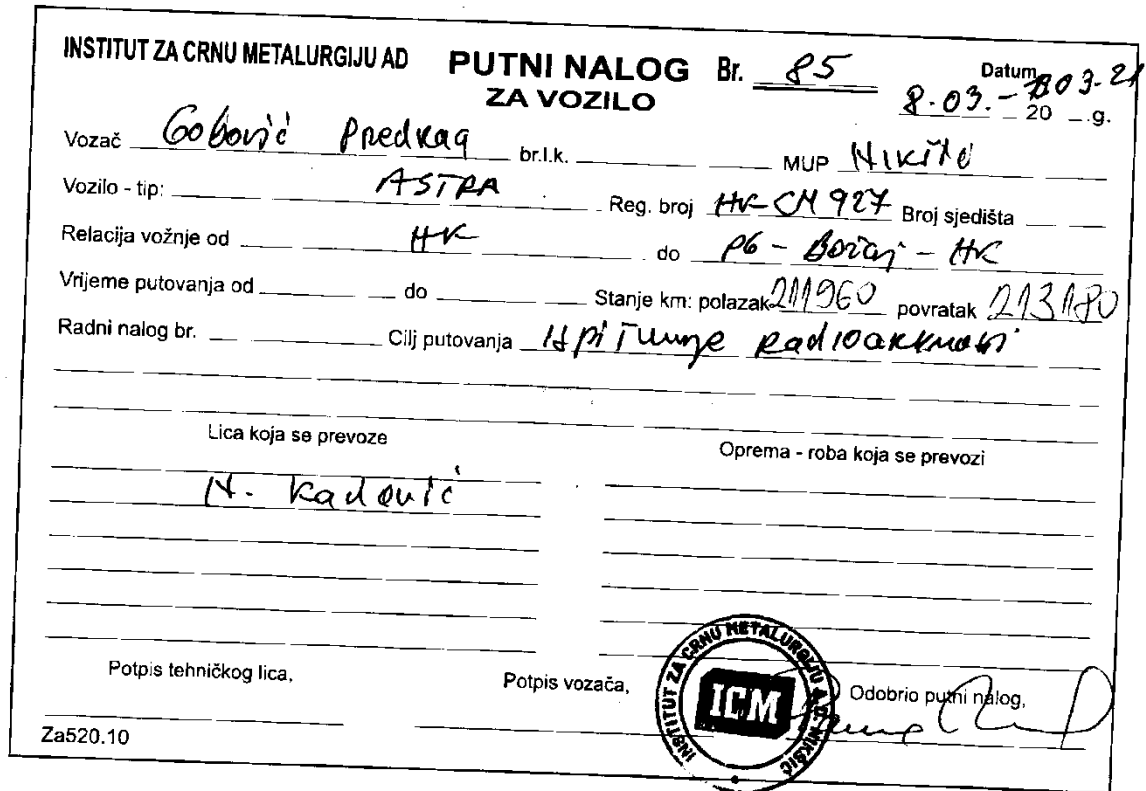 INSTITUT ZA CRNU METALURGIJU AD PUTNI NALOG Br. 85 Datum
ZA VOZILO 8.03.- 03.21 20 g.
Vozač Gobović Predrag br.l.k. MUP
Vozilo - tip: ASTRA Reg. broj NK-CM 927 Broj sjedišta
Relacija vožnje od NK do PG - Božaj - NK
Vrijeme putovanja od do Stanje km: polazak 211960 povratak 213180
Radni nalog br. Cilj putovanja
Lica koja se prevoze Oprema - roba koja se prevozi
N. Kadović
Potpis tehničkog lica, Potpis vozača, Odobrio putni nalog,
INSTITUT ZA CRNU METALURGIJU A.D. NIKŠIĆ
ICM
Za520.10